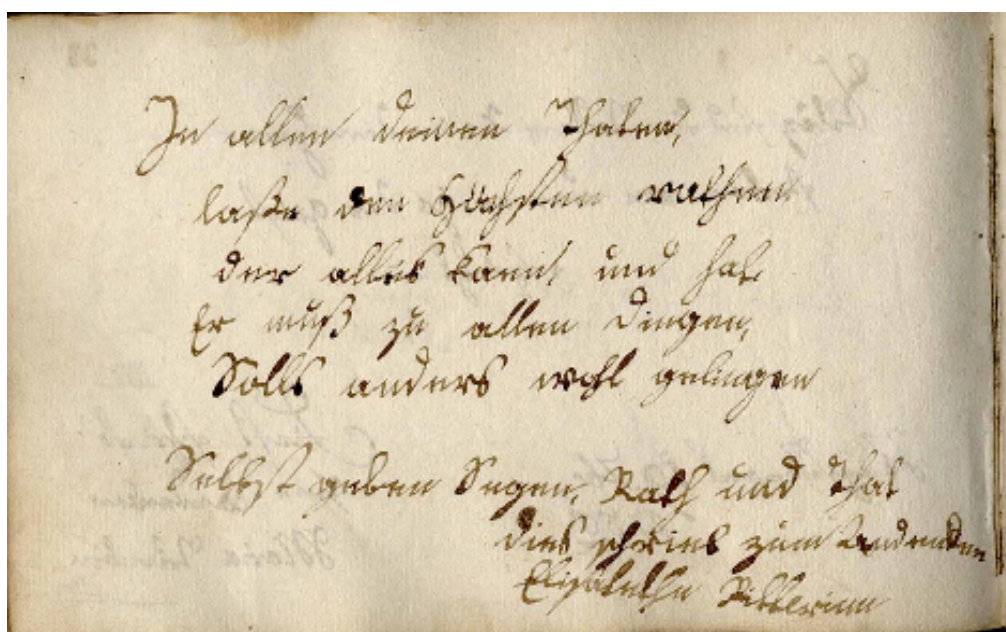 In allen deinen Thaten,
laße den Höchsten rathen
der alles kann und hat
Er muß zu allen Dingen,
Solls anders wohl gelingen
Selbst geben Segen, Rath und That
dies schrieb zum Andenken
Elisabetha